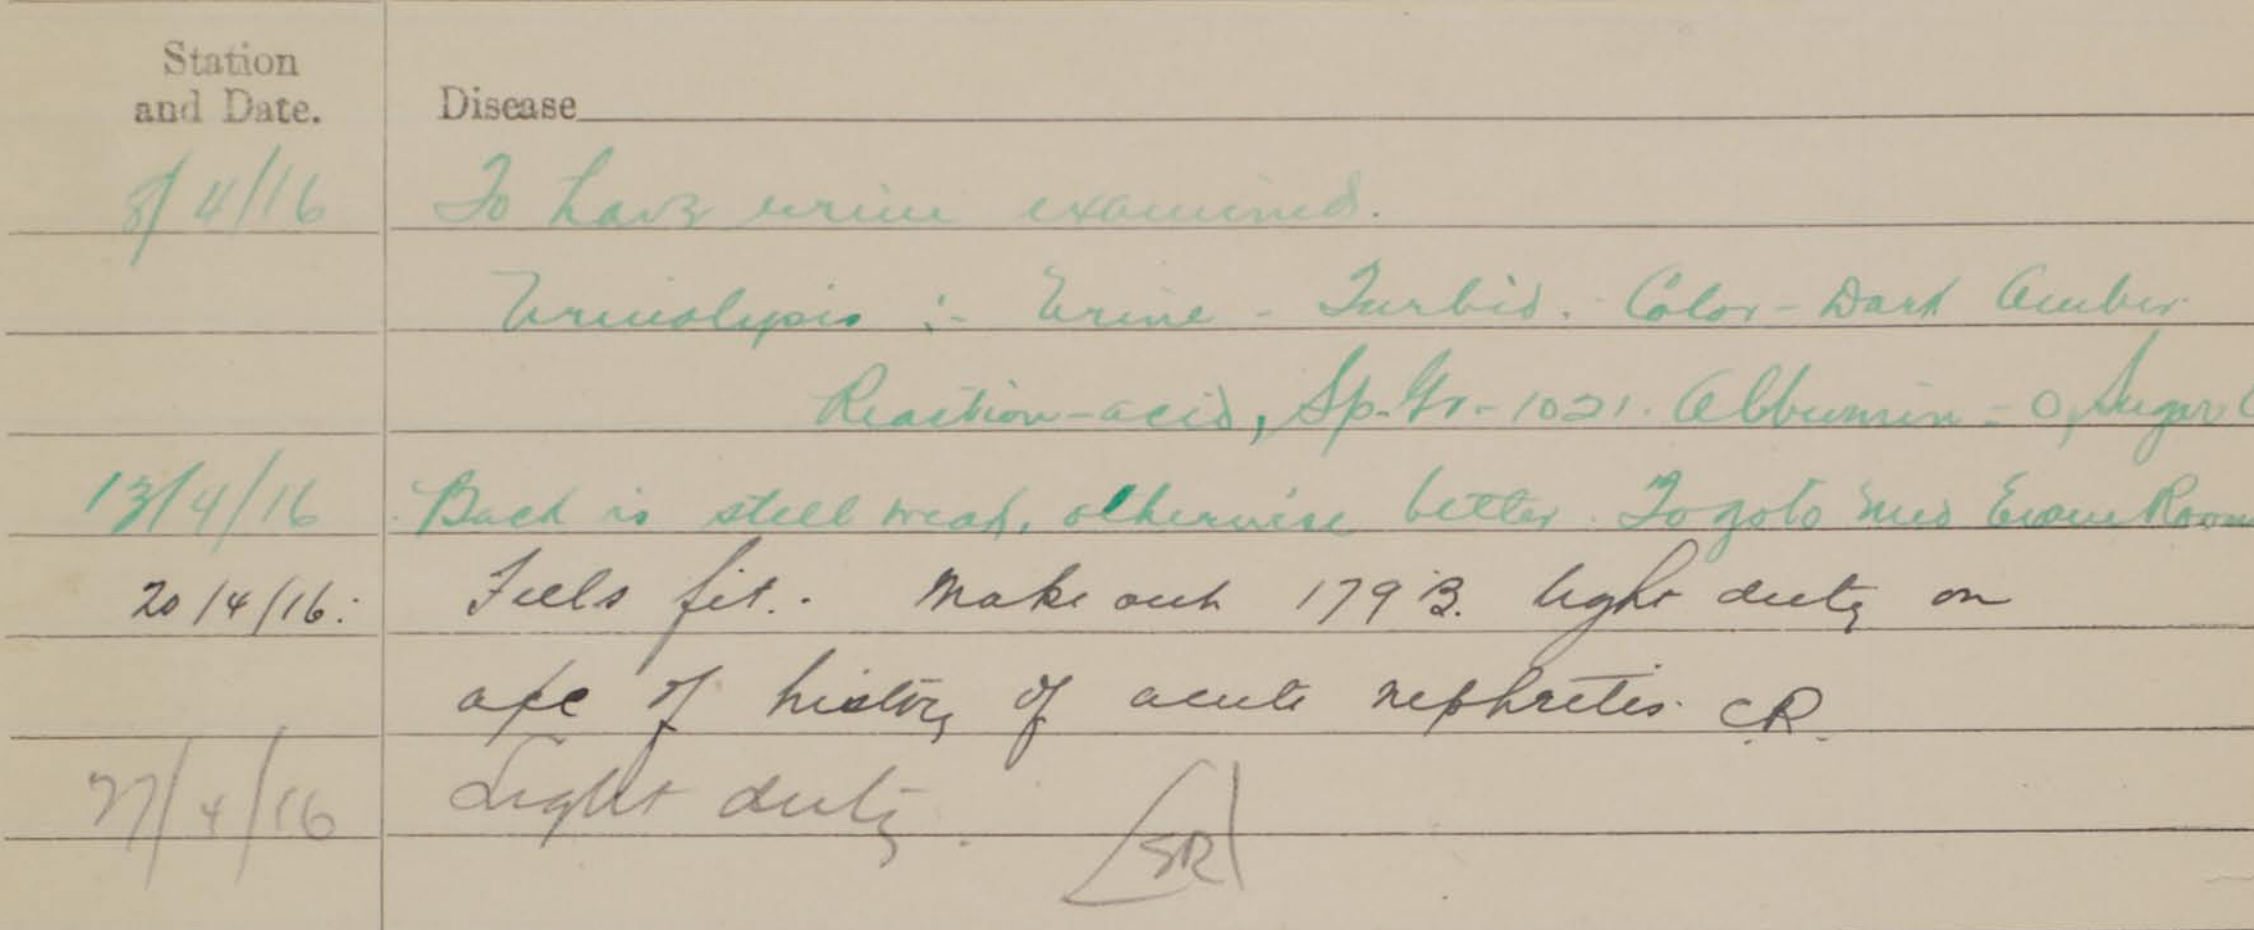 Station
and Date.
Disease
8/4/16 To have urine examined.
Urinolypis :- Urine - Turbid. Color - Dark Amber
Reaction - acid, Sp. Gr. - 1021. Albbumin - 0, Sugar
13/4/16 Back is still weak, otherwise better. To go to Med Exam Room
20/4/16: Feels fit. Make out 179 B. light duty on
a/c of history of acute nephritis. C.R.
27/4/16 Light duty.